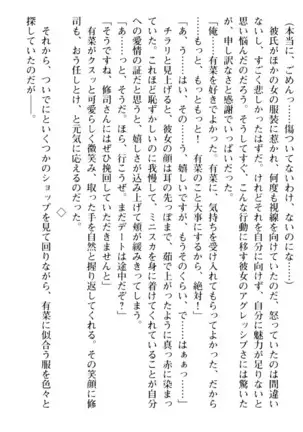 (本当に、ごめんっ……傷ついてないわけ、ないのにな……)
彼氏がほかの女の服装に惹かれ、何度も視線を向けていたのだ、怒っていたのは間違い
ないし、すごく悲しかったはずだ。けれどそれを自分に向けず、自分に魅力が足りないと
思い悩んだのだろう。そうしてすぐ、こんな行動に移す彼女のアグレッシブさには驚いた
が、申し訳なさと感謝でいっぱいだった。
「俺……有菜を好きでよかった。有菜に、気持ちを受け入れてもらってよかった、だから
もっと、もっともっと! 有菜のこと大事にするから、絶対!」
「あ、う……はい、その……嬉しいですが、もうそのくらい、で……はぁぁっ……」
チラリと見上げると、彼女の顔は耳の先っぽまで、茹で上がったように真っ赤に染まっ
ていた。これほど恥ずかしいのに我慢して、ミニスカを身に着けてきていることが自分
への愛情の証だと思うと、嬉しさが込み上げて頬が緩みきってしまう。
「あ……っと、そうだ、ほら、行こうぜ、まだデートは途中だぞ?」
「そうですね、修司さんにはぜひ挽回していただきませんと」
有菜がクスッと可愛らしく微笑み、取った手を自然と握り返してくれる。その笑顔に修
司も、おう任せとけ、と元気に応えるのだった。
◇
それから、ついでにといくつかのショップを見て回りながら、有菜に似合う服を色々と
探していたのだが――。